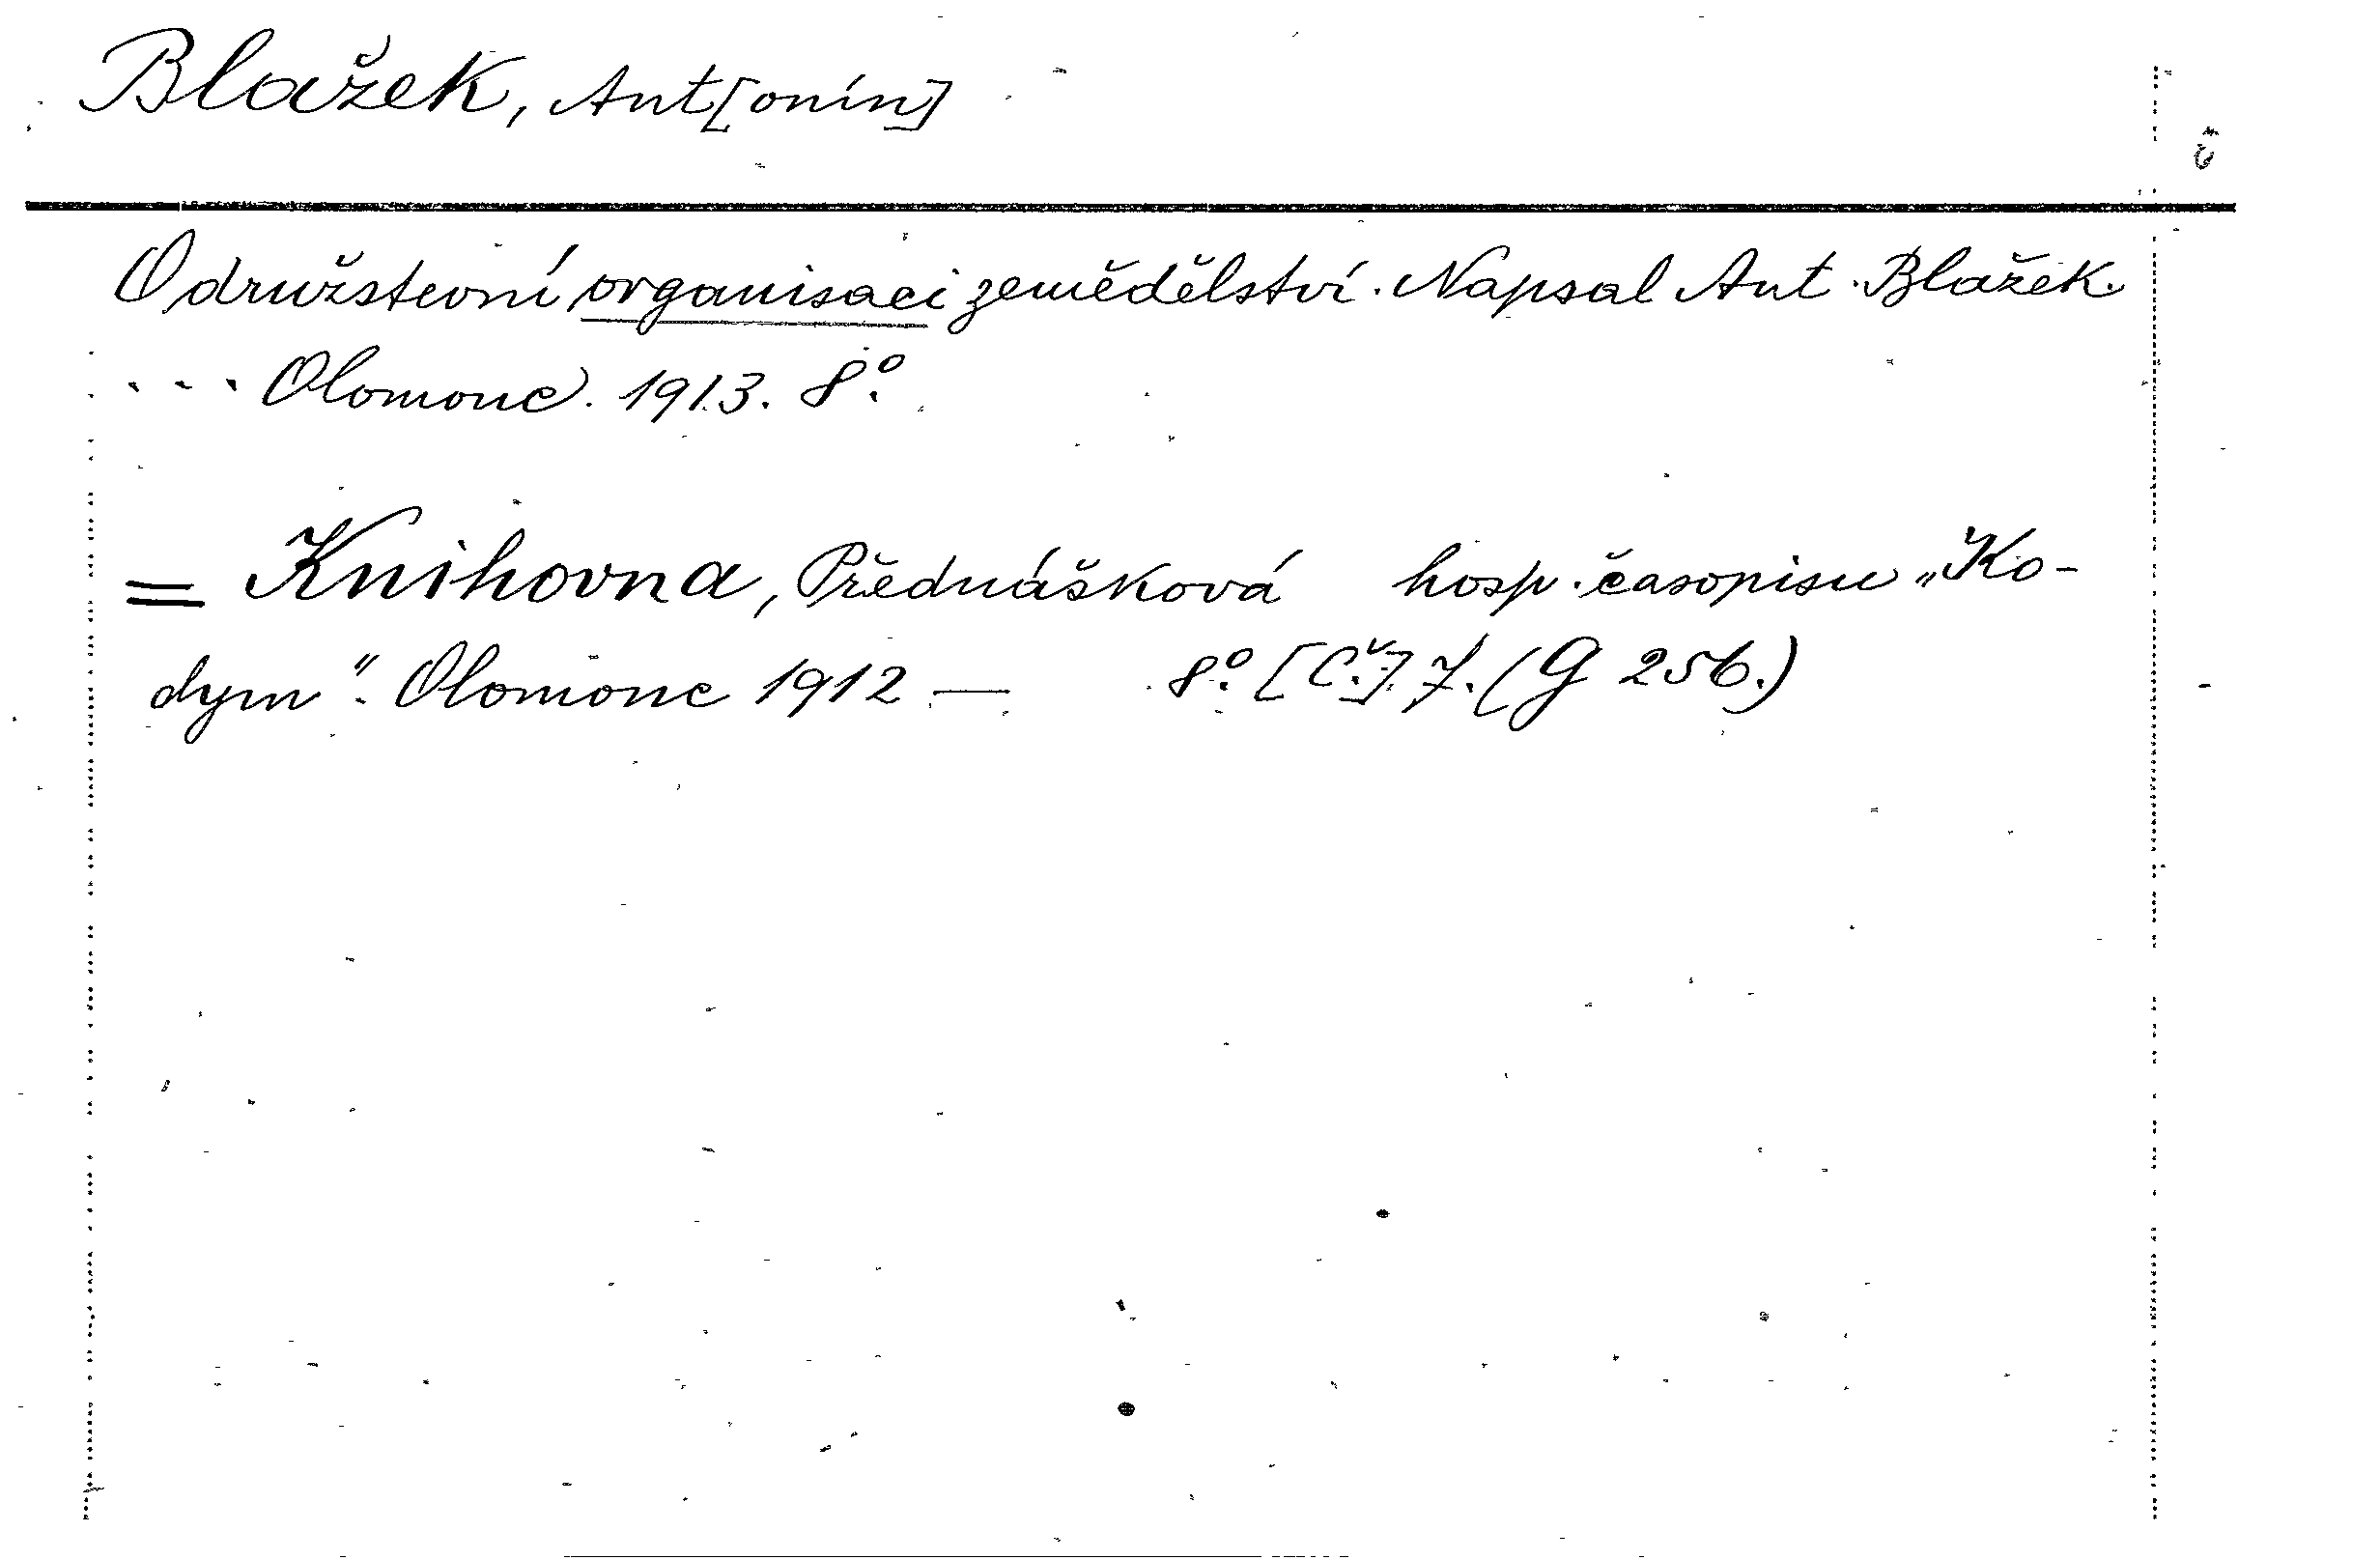 Blažek, Ant[onín]
O družstevní organisaci zemědělství. Napsal Ant. Blažek.
... Olomouc. 1913. 8°.
= Knihovna, Přednášková hosp. časopisu „Ko-
dym“. Olomouc 1912 — 8°. [Č.] 7. (G 256.)